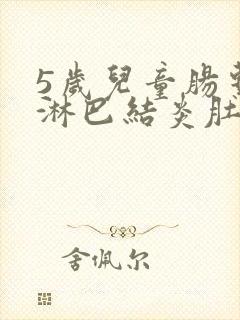 5歲兒童腸
淋巴結炎肚
舍佩尔